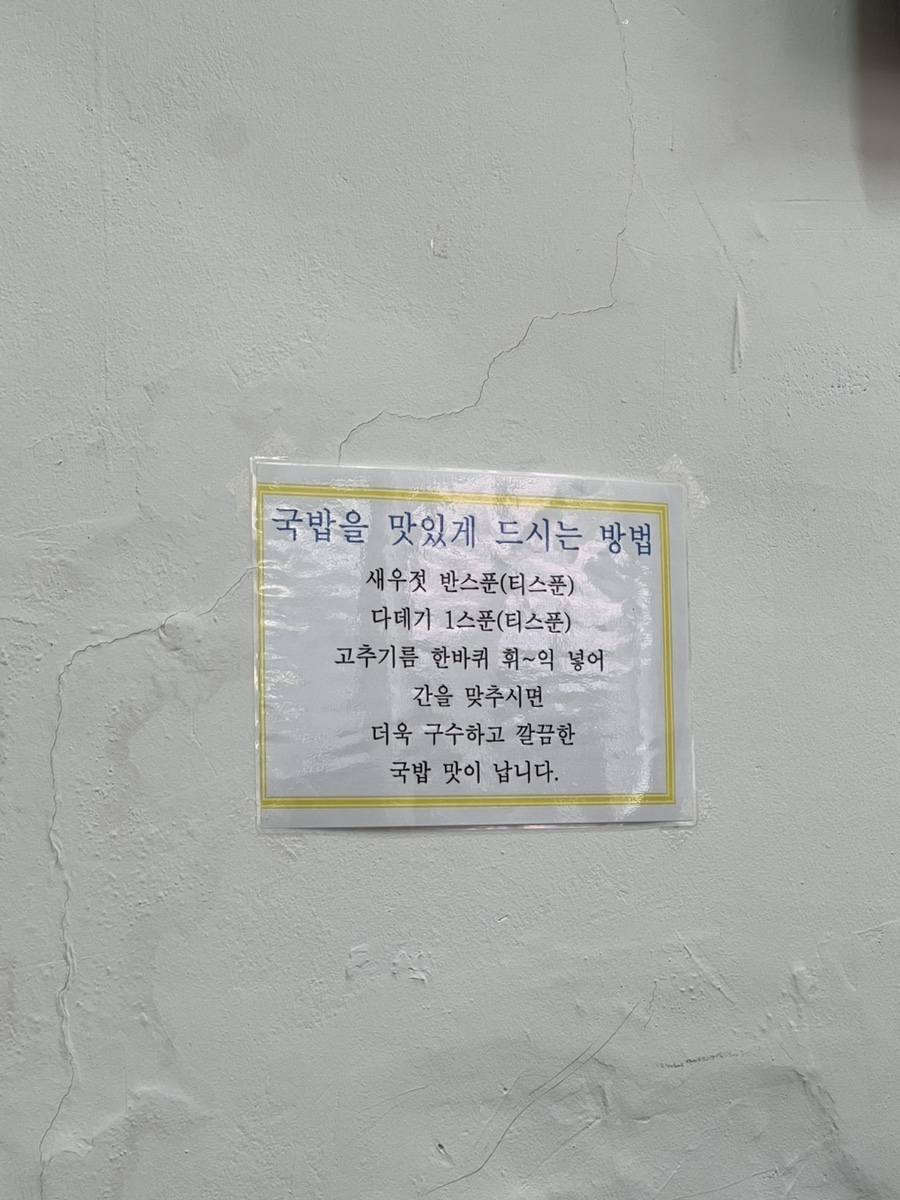 국밥을 맛있게 드시는 방법
새우젓 반스푼(티스푼)
다데기 1스푼(티스푼)
고추기름 한바퀴 휘~익 넣어
간을 맞추시면
더욱 구수하고 깔끔한
국밥 맛이 납니다.